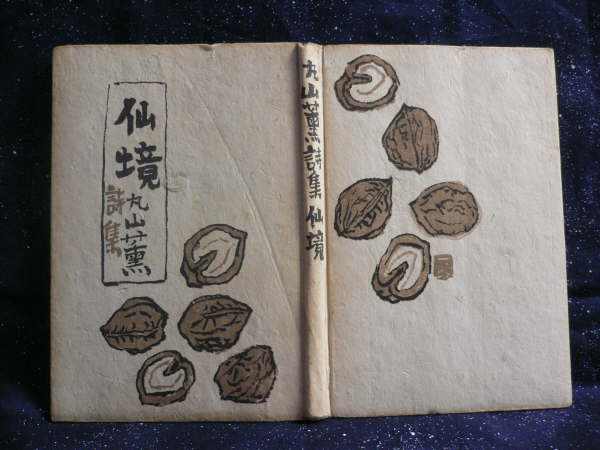 仙境
丸山薫
詩集
丸山薫詩集 仙境